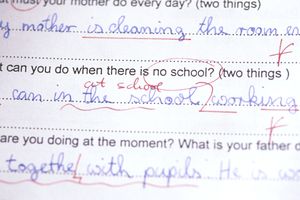 must your mother do every day? (two things)
my mother is cleaning the room
t can you do when there is no school? (two things )
at school
can in the school working
are you doing at the moment? What is your father d
together with pupils. He is wo